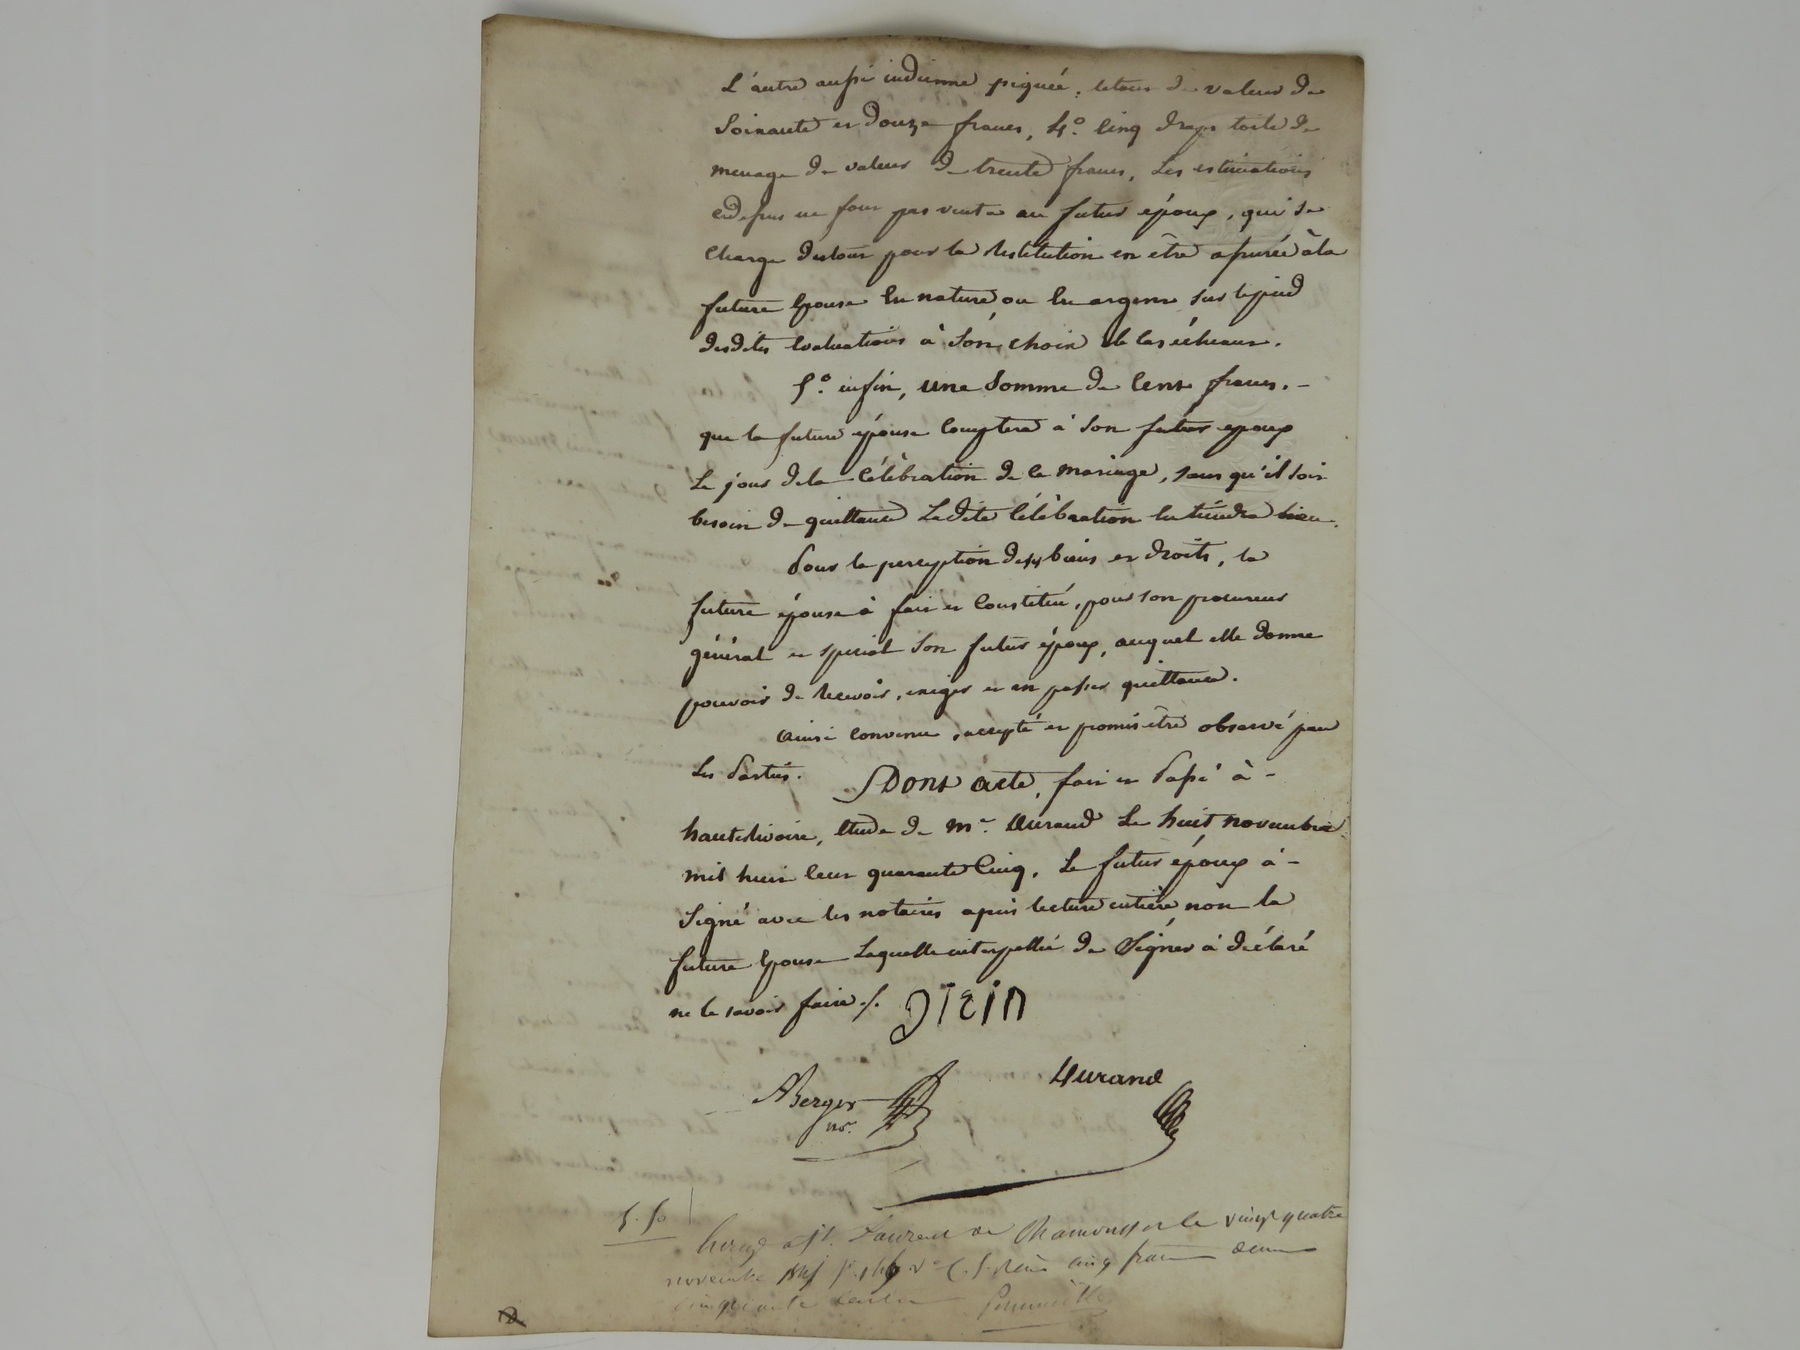 L'autre aussi indienne piquée, letout de valeur de
Soixante et douze francs, 4.° Cinq draps toile de
menage de valeur de trente francs, Les estimations
cidessus ne font pas vente au futur époux, qui se
charge dutout pour la restitution en être assurée à la
future Epouse En nature ou En argent sur le pied
desdites Evaluations à Son choix et le cas échéant.
5.° enfin, une Somme de Cent francs. -
que la future épouse Comptera à Son futur époux
Le jour dela Célébration de ce mariage, sans qu'il soit
besoin de quittance Ladite Célébration en tiendra lieu.
Pour la perception de ses biens et droits, la
future épouse à fait et Constitué, pour son procureur
général et spécial Son futur époux, auquel elle donne
pouvoir de recevoir, exiger et en passer quittance.
Ainsi convenu, accepté et promis être observé par
Les Parties. Dont acte, fait et Passé à -
hauterivoire, Etude de M.e Durand Le huit novembre
mil huit Cent quarante Cinq. Le futur époux à -
Signé avec les notaires après lecture entière non la
future Epouse Laquelle interpellée de Signer à déclaré
ne le savoir faire ./. Diein
ABerger Durand
nre.
5.50
Enregé à St. Laurent de Chamousset le vingt quatre
novembre 1845 fo. 146 vo C. 5. Reçu cinq francs
cinquante centimes